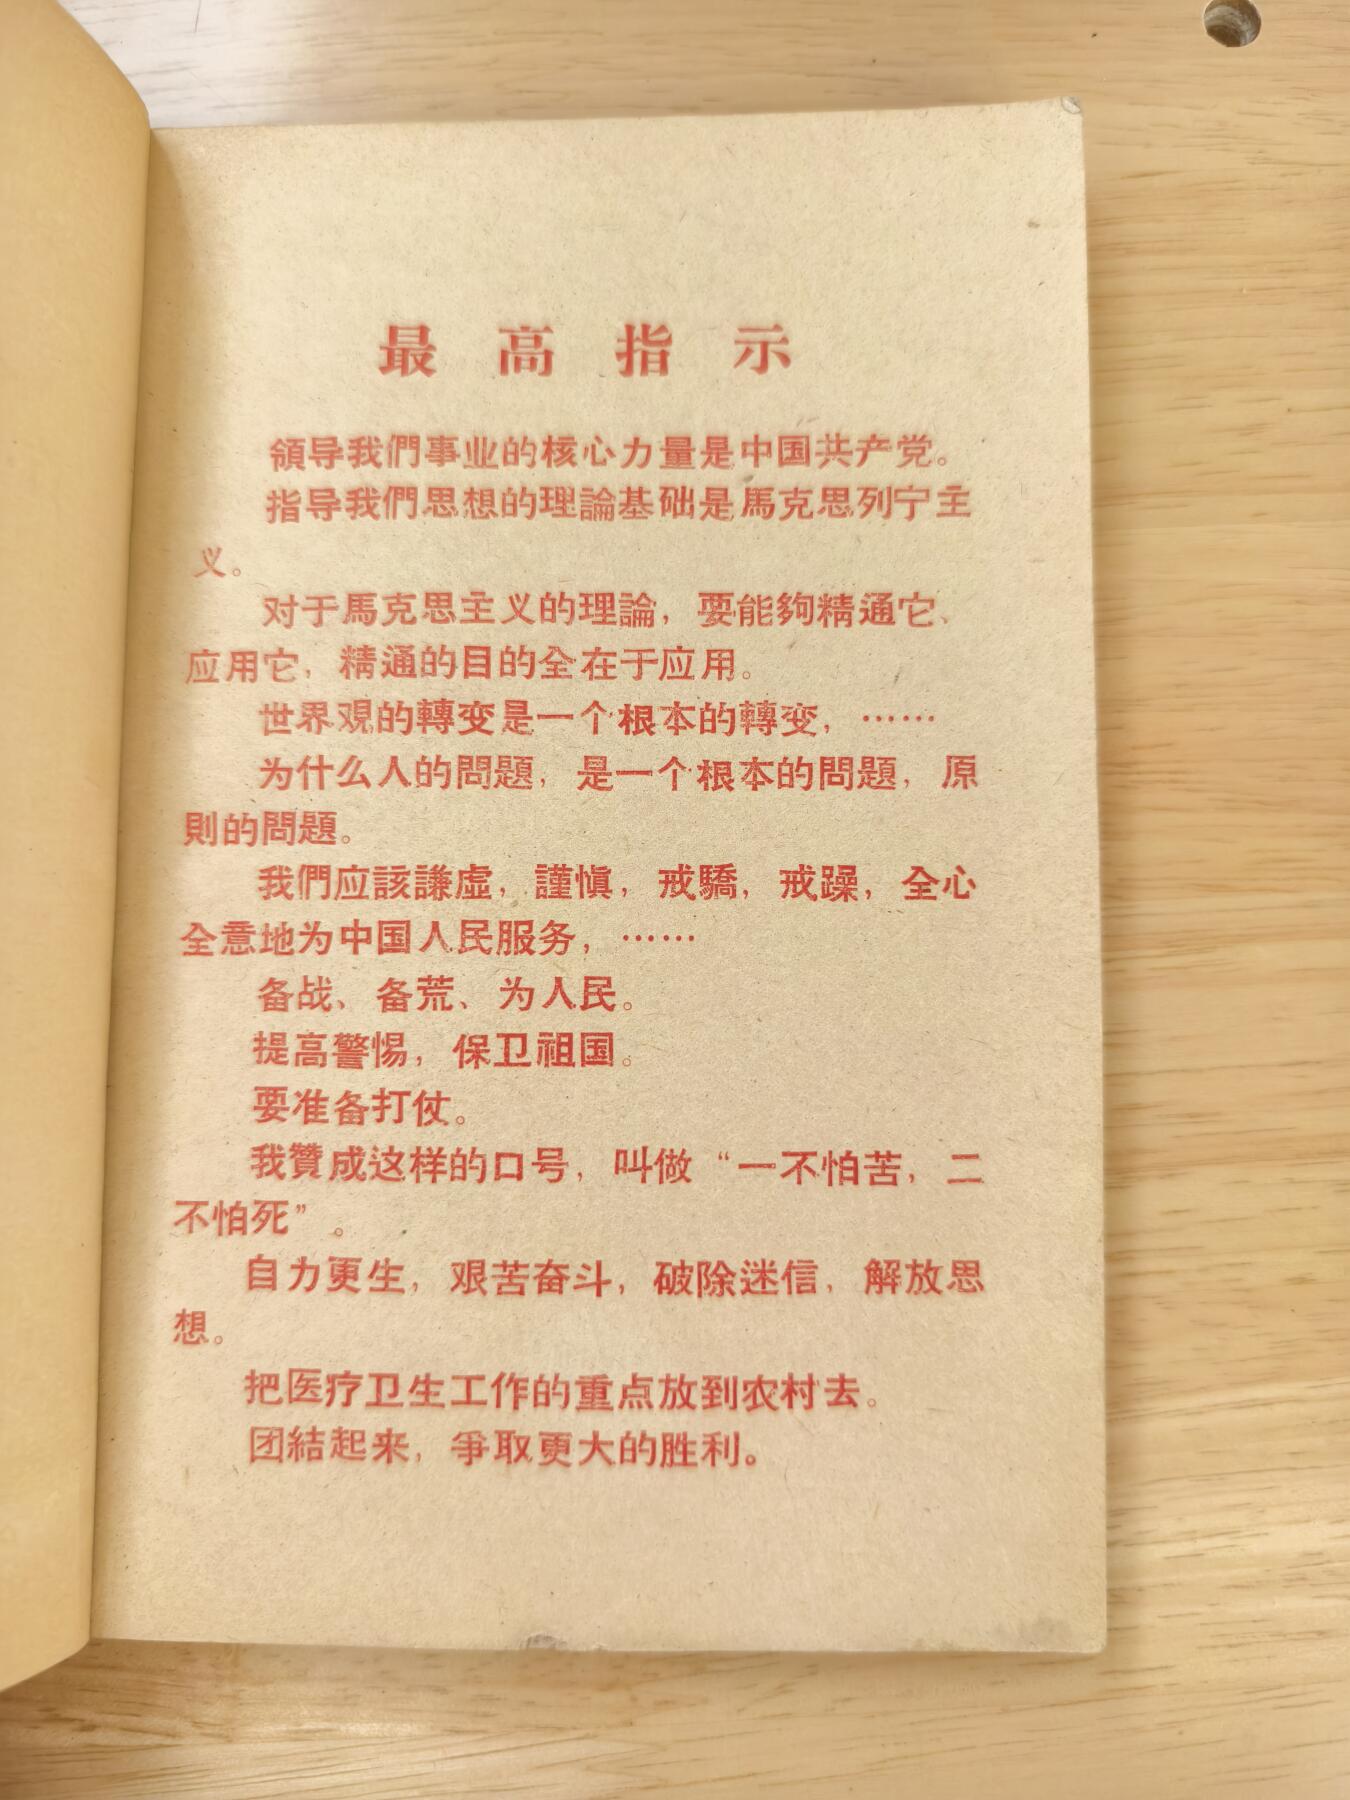 最高指示
領导我們事业的核心力量是中国共产党。
指导我們思想的理論基础是馬克思列宁主
义。
对于馬克思主义的理論，要能夠精通它、
应用它，精通的目的全在于应用。
世界观的轉变是一个根本的轉变，……
为什么人的問題，是一个根本的問題，原
則的問題。
我們应該謙虛，謹愼，戒驕，戒躁，全心
全意地为中国人民服务，……
备战、备荒、为人民。
提高警惕，保卫祖国。
要准备打仗。
我贊成这样的口号，叫做“一不怕苦，二
不怕死”。
自力更生，艰苦奋斗，破除迷信，解放思
想。
把医疗卫生工作的重点放到农村去。
团結起来，爭取更大的胜利。